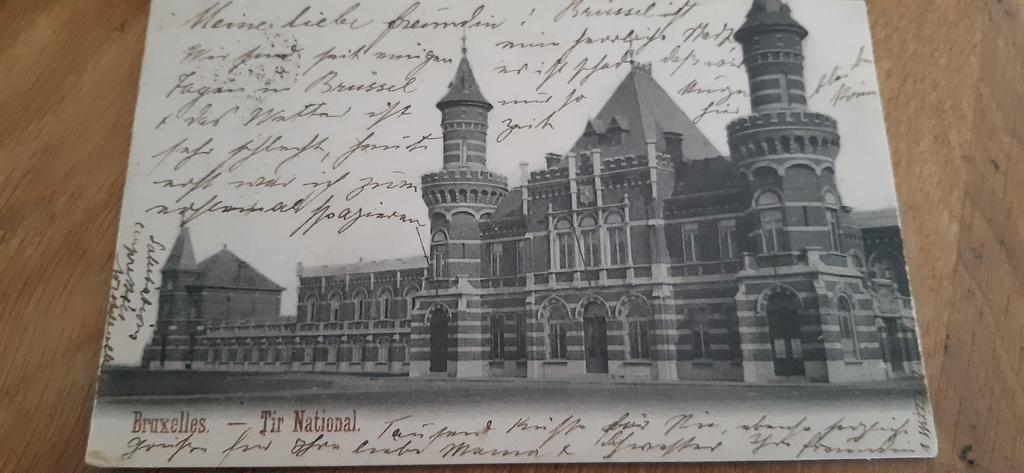 Meine liebe Freundin! Brüssel ist
Wir sind seit einigen
Tagen in Brüssel
& das Wetter ist
sehr schlecht, heute
erst war ich zum
erstenmal spazieren
eine herrliche Stadt,
es ist schade daß wir
nur so kurze
Zeit hier
Bruxelles. — Tir National.
Tausend Küsse für Sie, ebenso herzliche
Grüße für Ihre liebe Mama & Schwester Ihre Freundin